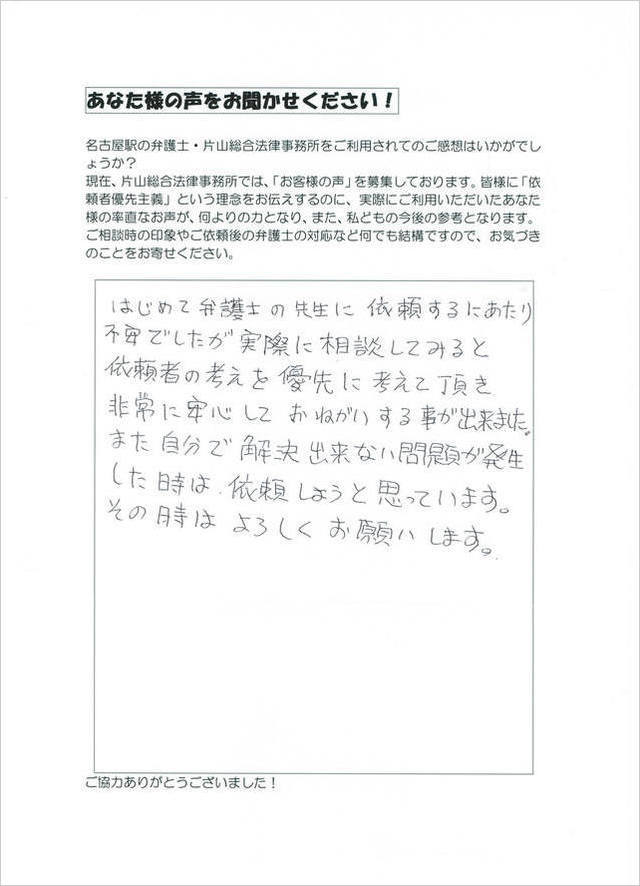 あなた様の声をお聞かせください！
名古屋駅の弁護士・片山総合法律事務所をご利用されてのご感想はいかがでし
ょうか？
現在、片山総合法律事務所では、「お客様の声」を募集しております。皆様に「依
頼者優先主義」という理念をお伝えするのに、実際にご利用いただいたあなた
様の率直なお声が、何よりの力となり、また、私どもの今後の参考となります。
ご相談時の印象やご依頼後の弁護士の対応など何でも結構ですので、お気づき
のことをお寄せください。
はじめて弁護士の先生に依頼するにあたり
不安でしたが実際に相談してみると
依頼者の考えを優先に考えて頂き
非常に安心しておねがいする事が出来ました。
また自分で解決出来ない問題が発生
した時は依頼しようと思っています。
その時はよろしくお願いします。
ご協力ありがとうございました！